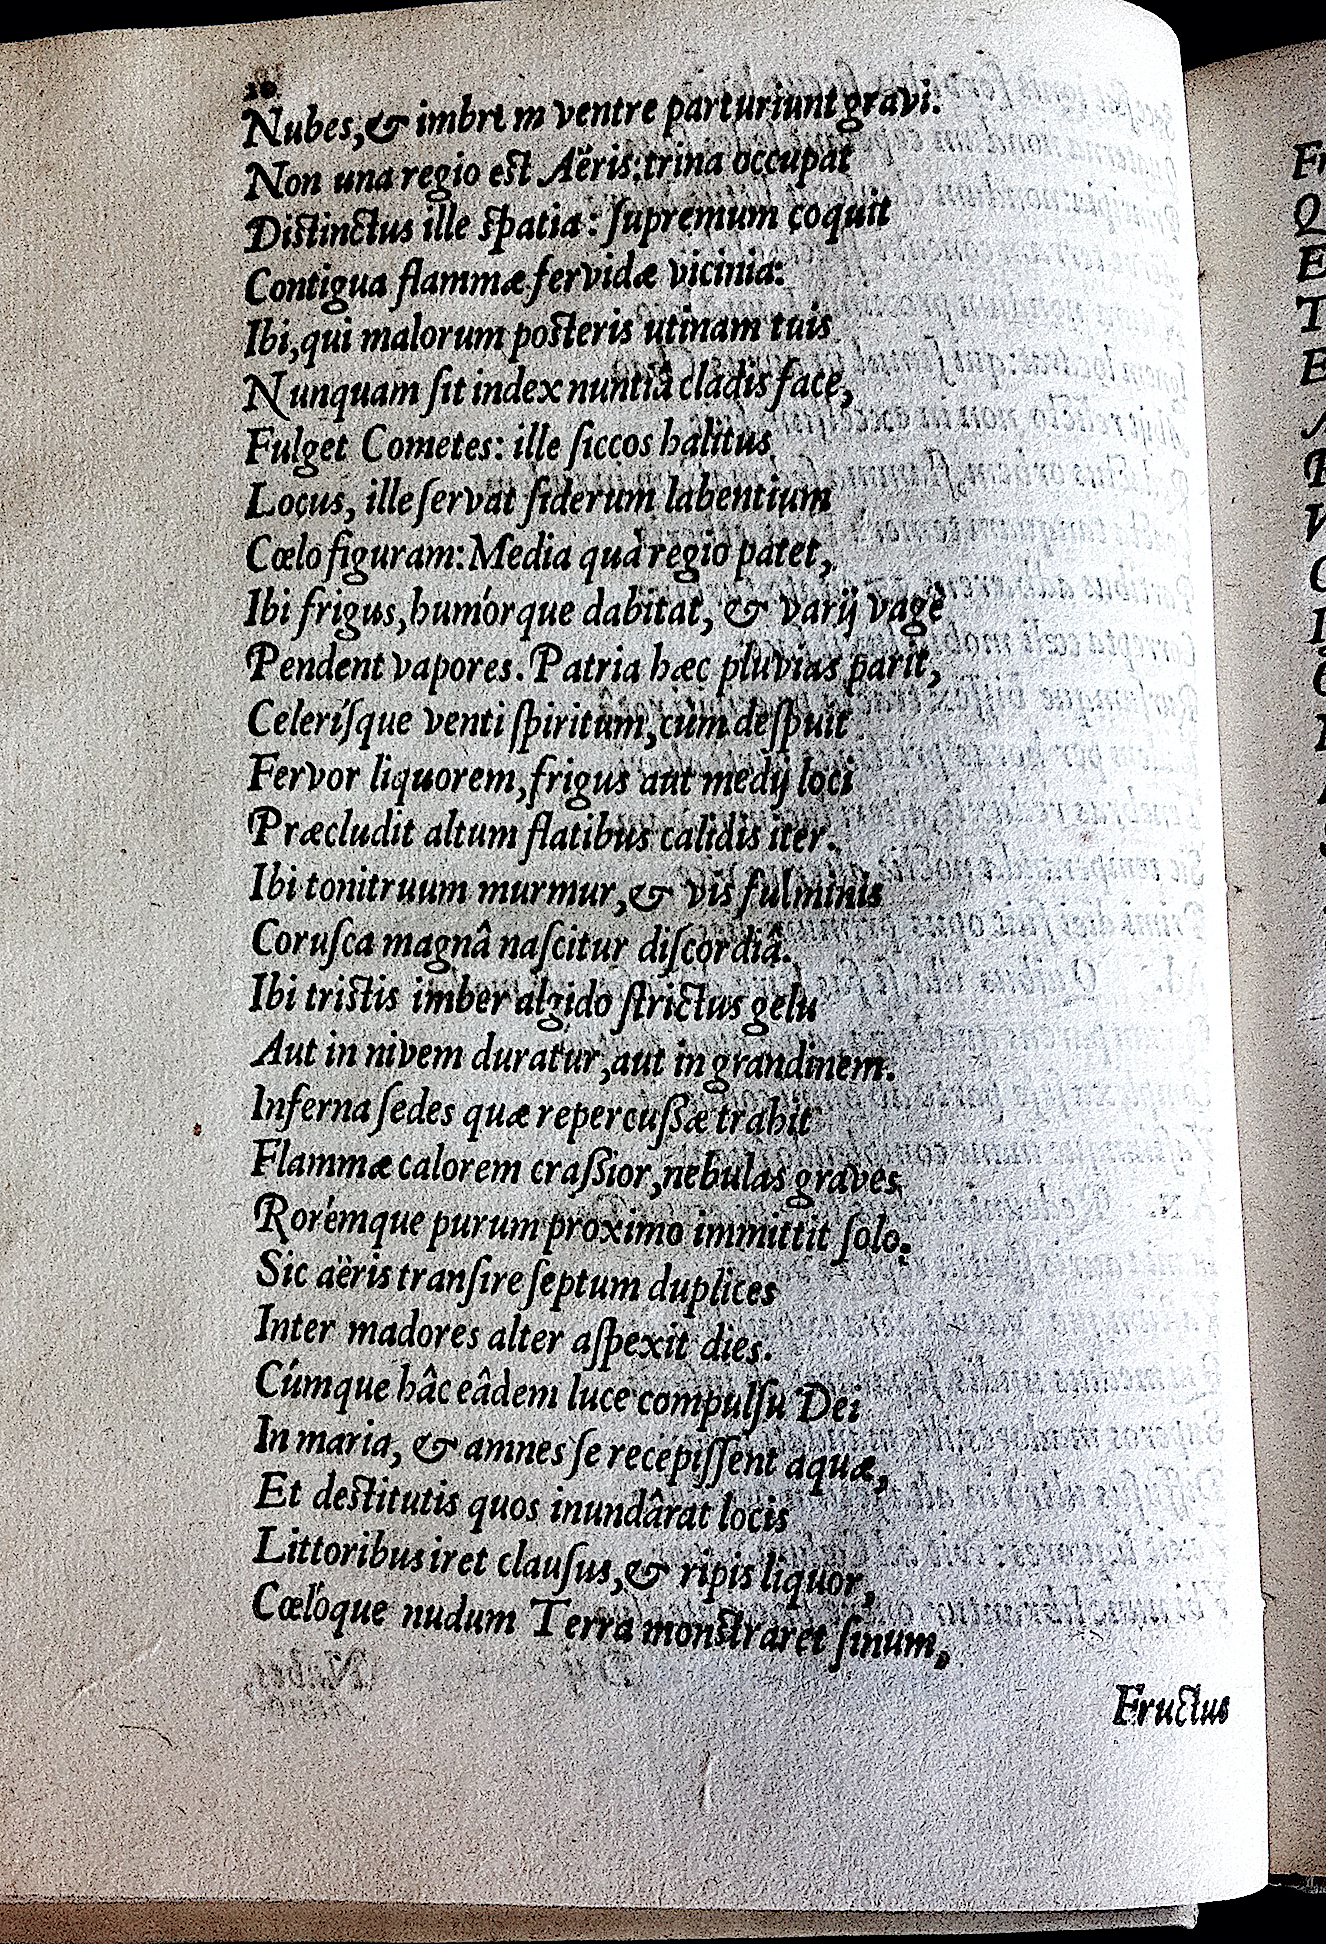 10
Nubes,& imbrem ventre parturiunt gravi.
Non una regio est Aëris:trina occupat
Distinctus ille spatia: supremum coquit
Contigua flammæ fervidæ vicinia:
Ibi,qui malorum posteris utinam tuis
Nunquam sit index nuntiâ cladis face,
Fulget Cometes: ille siccos halitus
Locus, ille servat siderum labentium
Cœlo figuram:Media quà regio patet,
Ibi frigus,humórque dabitat, & varij vagè
Pendent vapores. Patria hæc pluvias parit,
Celerísque venti spiritum,cùm despuit
Fervor liquorem,frigus aut medij loci
Præcludit altum flatibus calidis iter.
Ibi tonitruum murmur,& vis fulminis
Corusca magnâ nascitur discordiâ.
Ibi tristis imber algido strictus gelu
Aut in nivem duratur,aut in grandinem.
Inferna sedes quæ repercussæ trahit
Flammæ calorem crassior,nebulas graves,
Rorémque purum proximo immittit solo.
Sic aëris transire septum duplices
Inter madores alter aspexit dies.
Cúmque hâc eâdem luce compulsu Dei
In maria, & amnes se recepissent aquæ,
Et destitutis quos inundârat locis
Littoribus iret clausus,& ripis liquor,
Cœlóque nudum Terra monstraret sinum,
Fructus